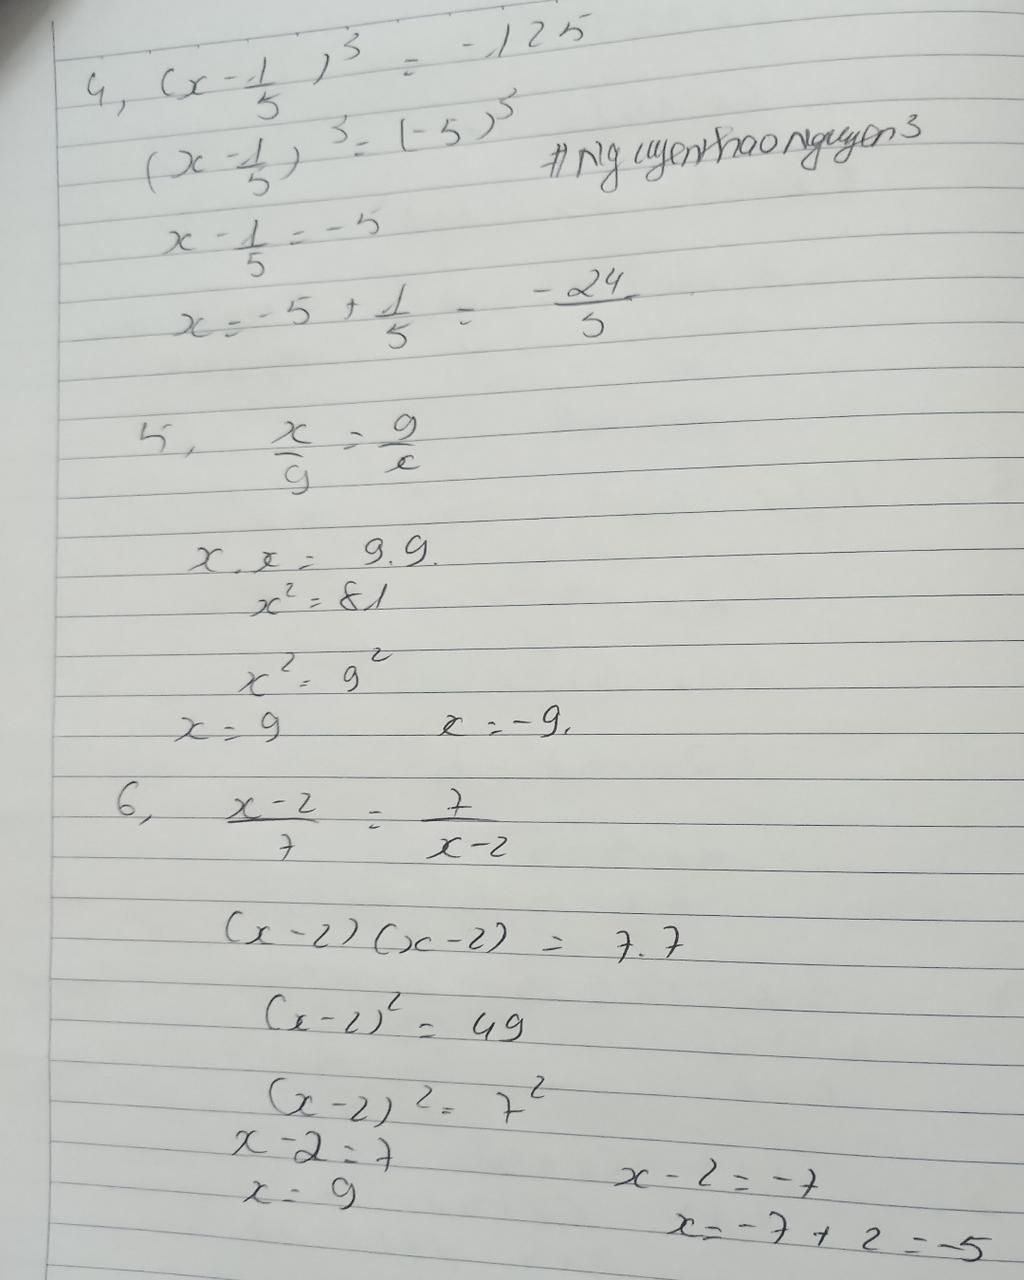 4, (x - 1/5)³ = -125
(x - 1/5)³ = (-5)³
#Nguyenthaonguyen3
x - 1/5 = -5
x = -5 + 1/5 = -24/5
5, x/9 = 9/x
x . x = 9.9.
x² = 81
x² = 9²
x = 9 x = -9.
6, x-2/7 = 7/x-2
(x-2)(x-2) = 7.7
(x-2)² = 49
(x-2)² = 7²
x-2 = 7 x-2 = -7
x = 9 x = -7 + 2 = -5